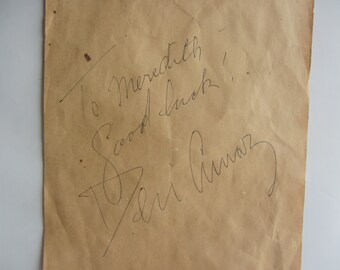 To Meredith
Good luck!..
Desi Arnaz